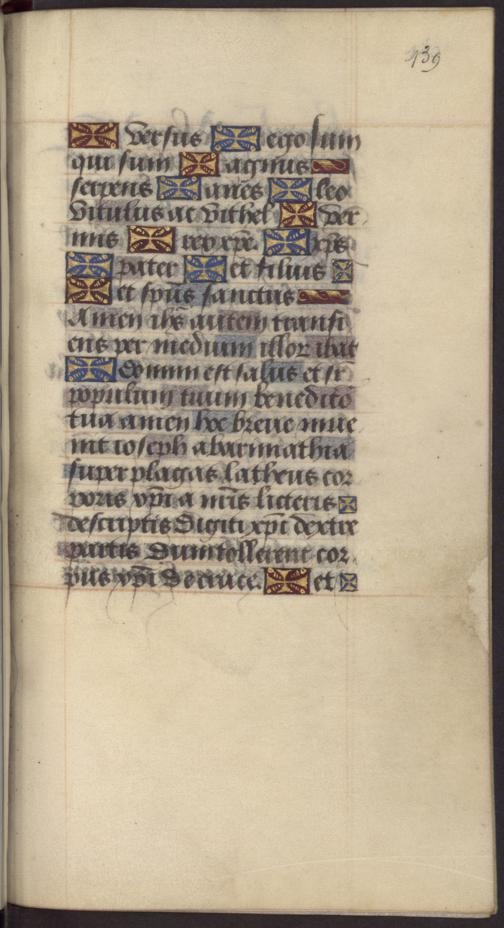 139
versus ego sum
qui sum agnus
serpens aries leo
vitulus ac vithel ver
mis rex xpe xps
pater et filius
et spūs sanctus
Amen ihs autem transi
ens per medium illor ibat
Domini est salus et sr
populum tuum benedictō
tua amen hoc breue inue
nit ioseph abarimathia
super plagas latheris cor
poris xpi a mīs licteris
descriptis digiti xpi dextre
partis dum tollerent cor
pus xpi de cruce. et